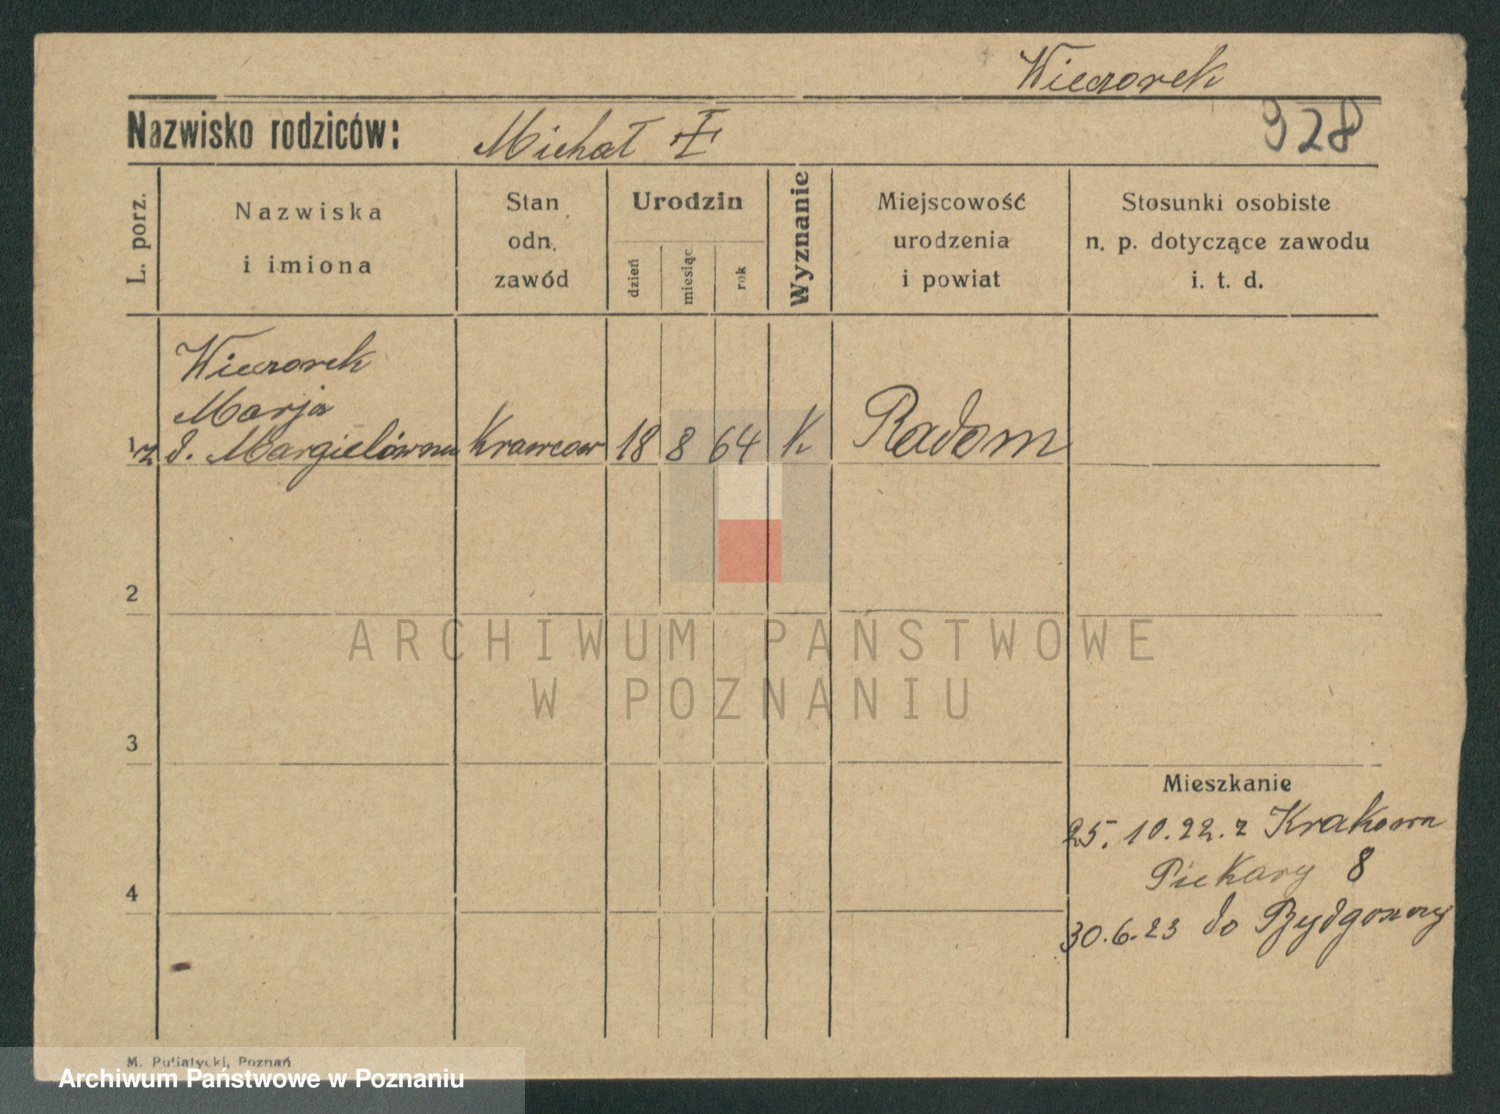 Wieczorek
Nazwisko rodziców: Michał
928
L. porz.
Nazwiska
i imiona
Stan
odn.
zawód
Urodzin
dzień
miesiąc
rok
Wyznanie
Miejscowość
urodzenia
i powiat
Stosunki osobiste
n. p. dotyczące zawodu
i. t. d.
Wieczorek
Marja
1 z d. Margielówna Krawcow 18 8 64 K Radom
2
ARCHIWUM PAŃSTWOWE
W POZNANIU
3
Mieszkanie
25. 10. 22. z Krakowa
Piekary 8
4
30. 6. 23 do Bydgoszczy
M. Putiatycki, Poznań
Archiwum Państwowe w Poznaniu